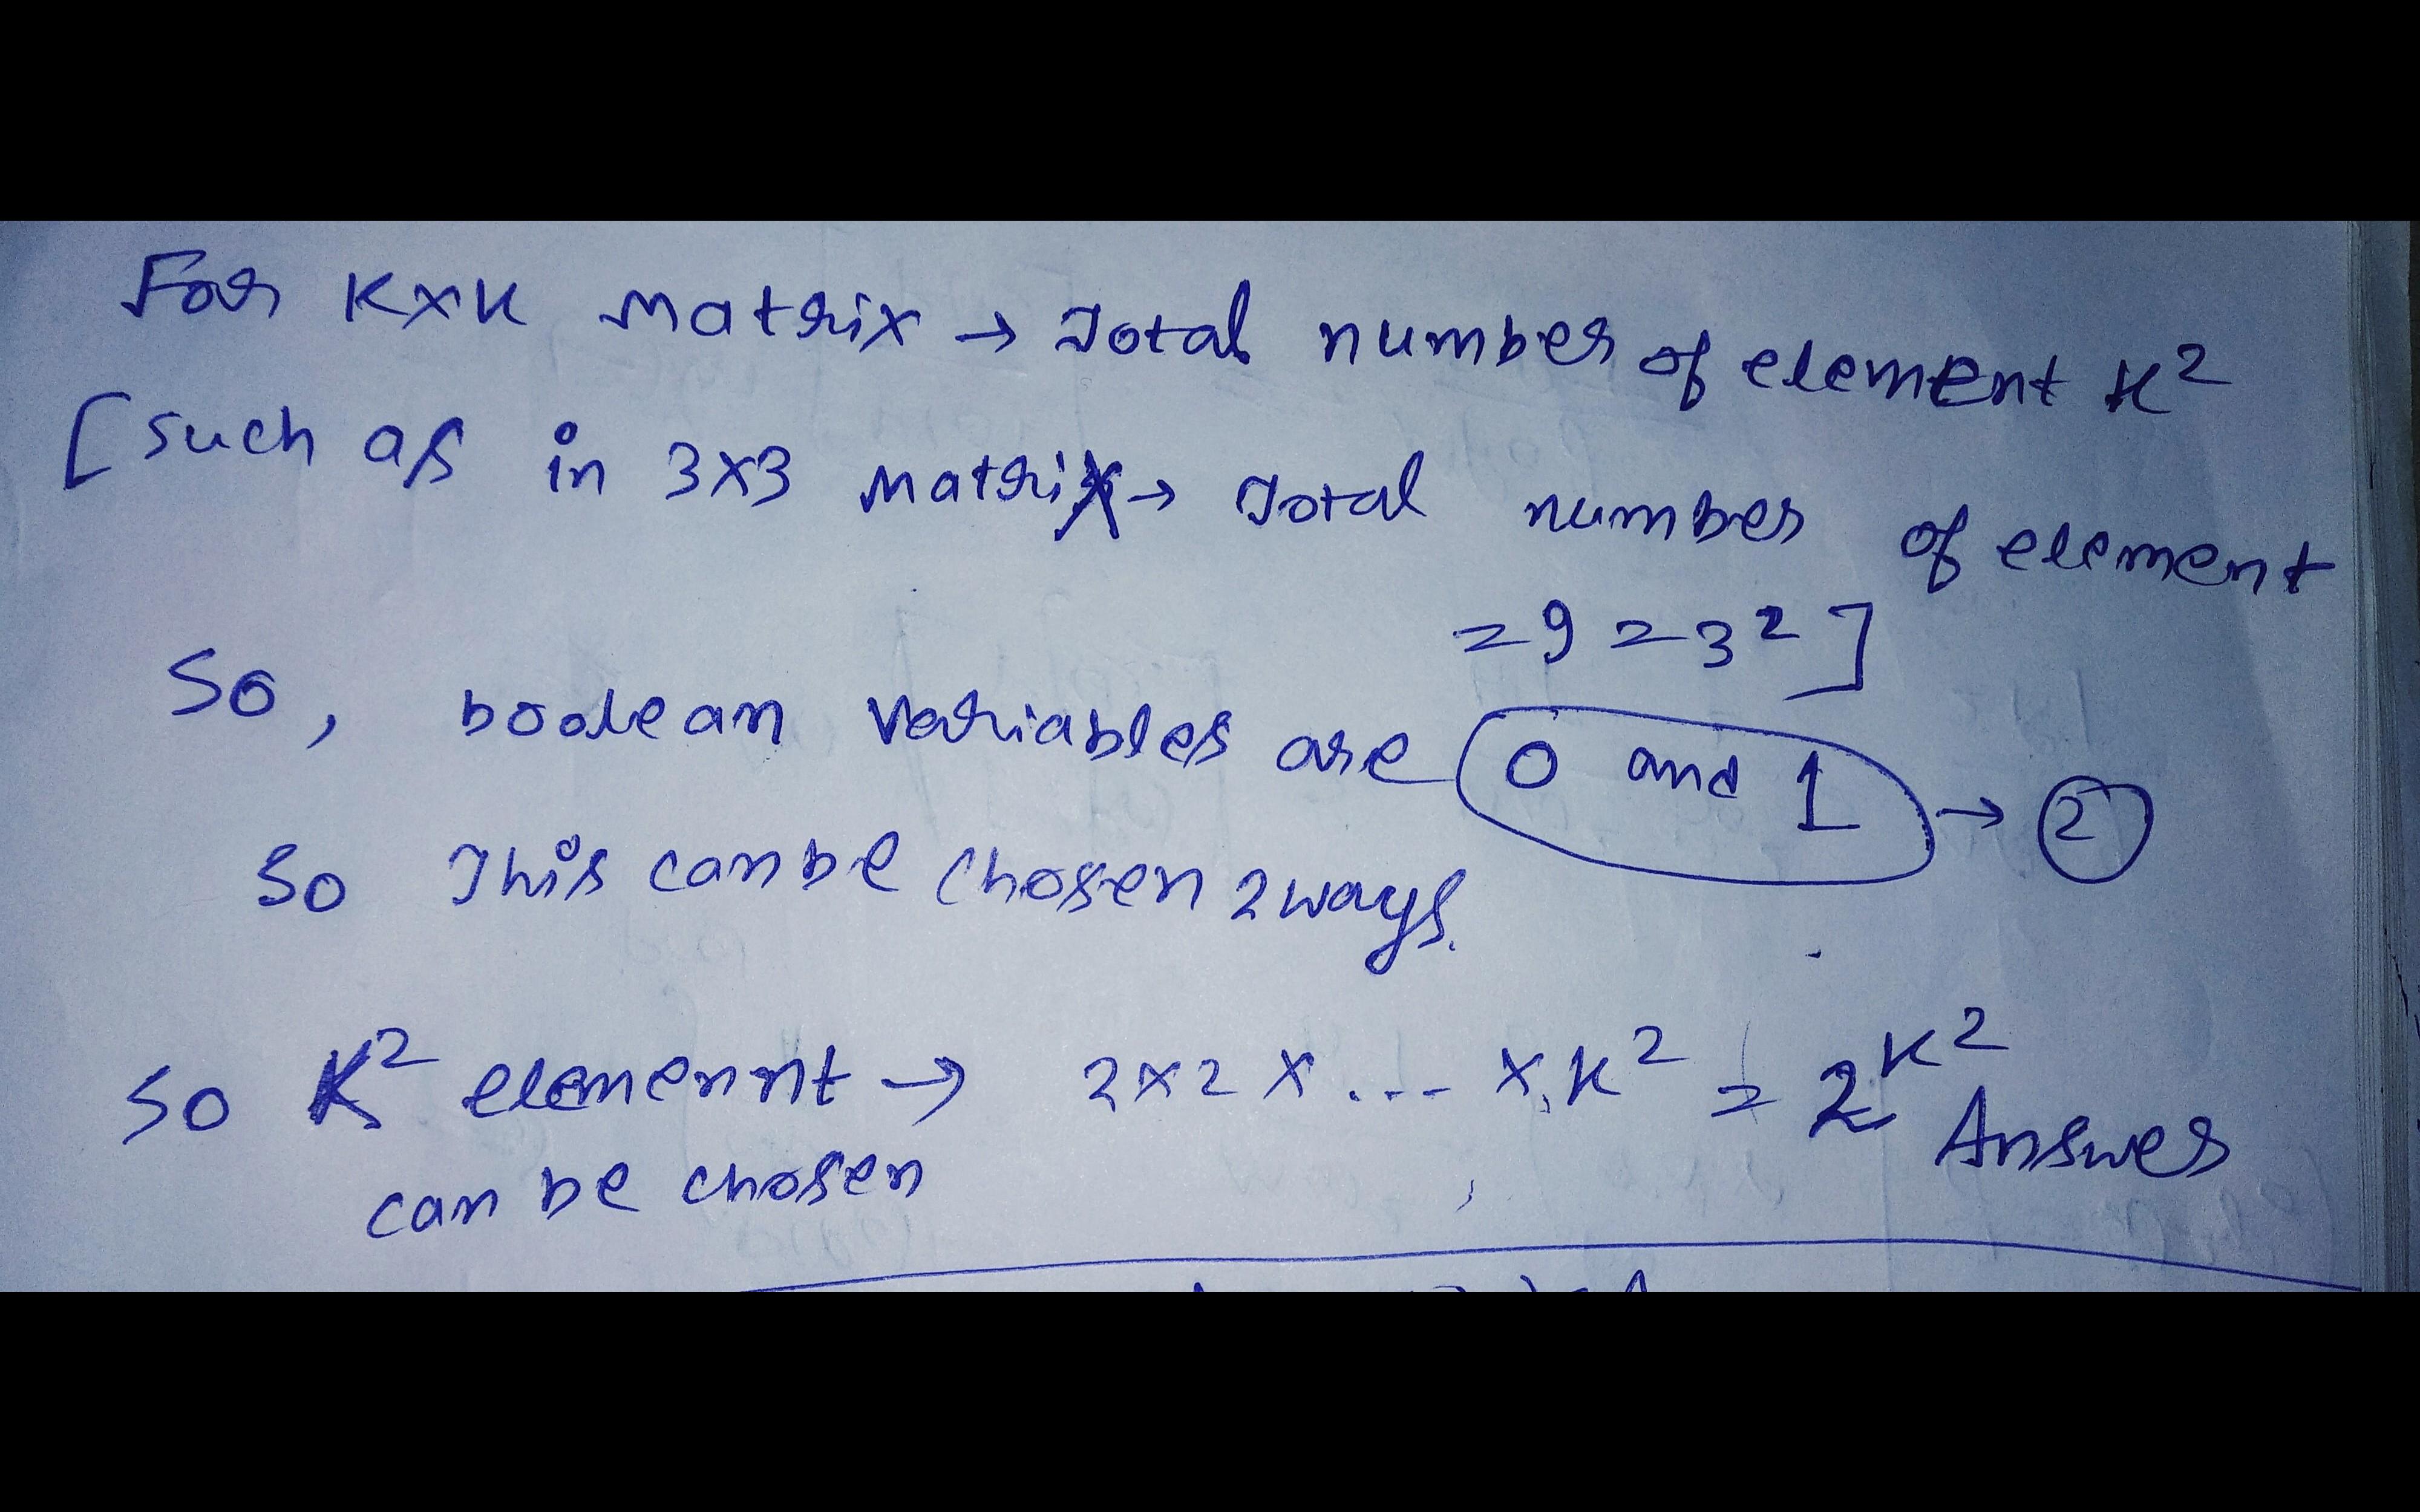 For K×K Matrix → Total number of element K²
[such as in 3×3 Matrix → Total number of element
=9=3²]
So, boolean variables are 0 and 1 → 2
So This can be chosen 2 ways.
So K² elemennt → 2×2×...×K² = 2^K² Answer
can be chosen